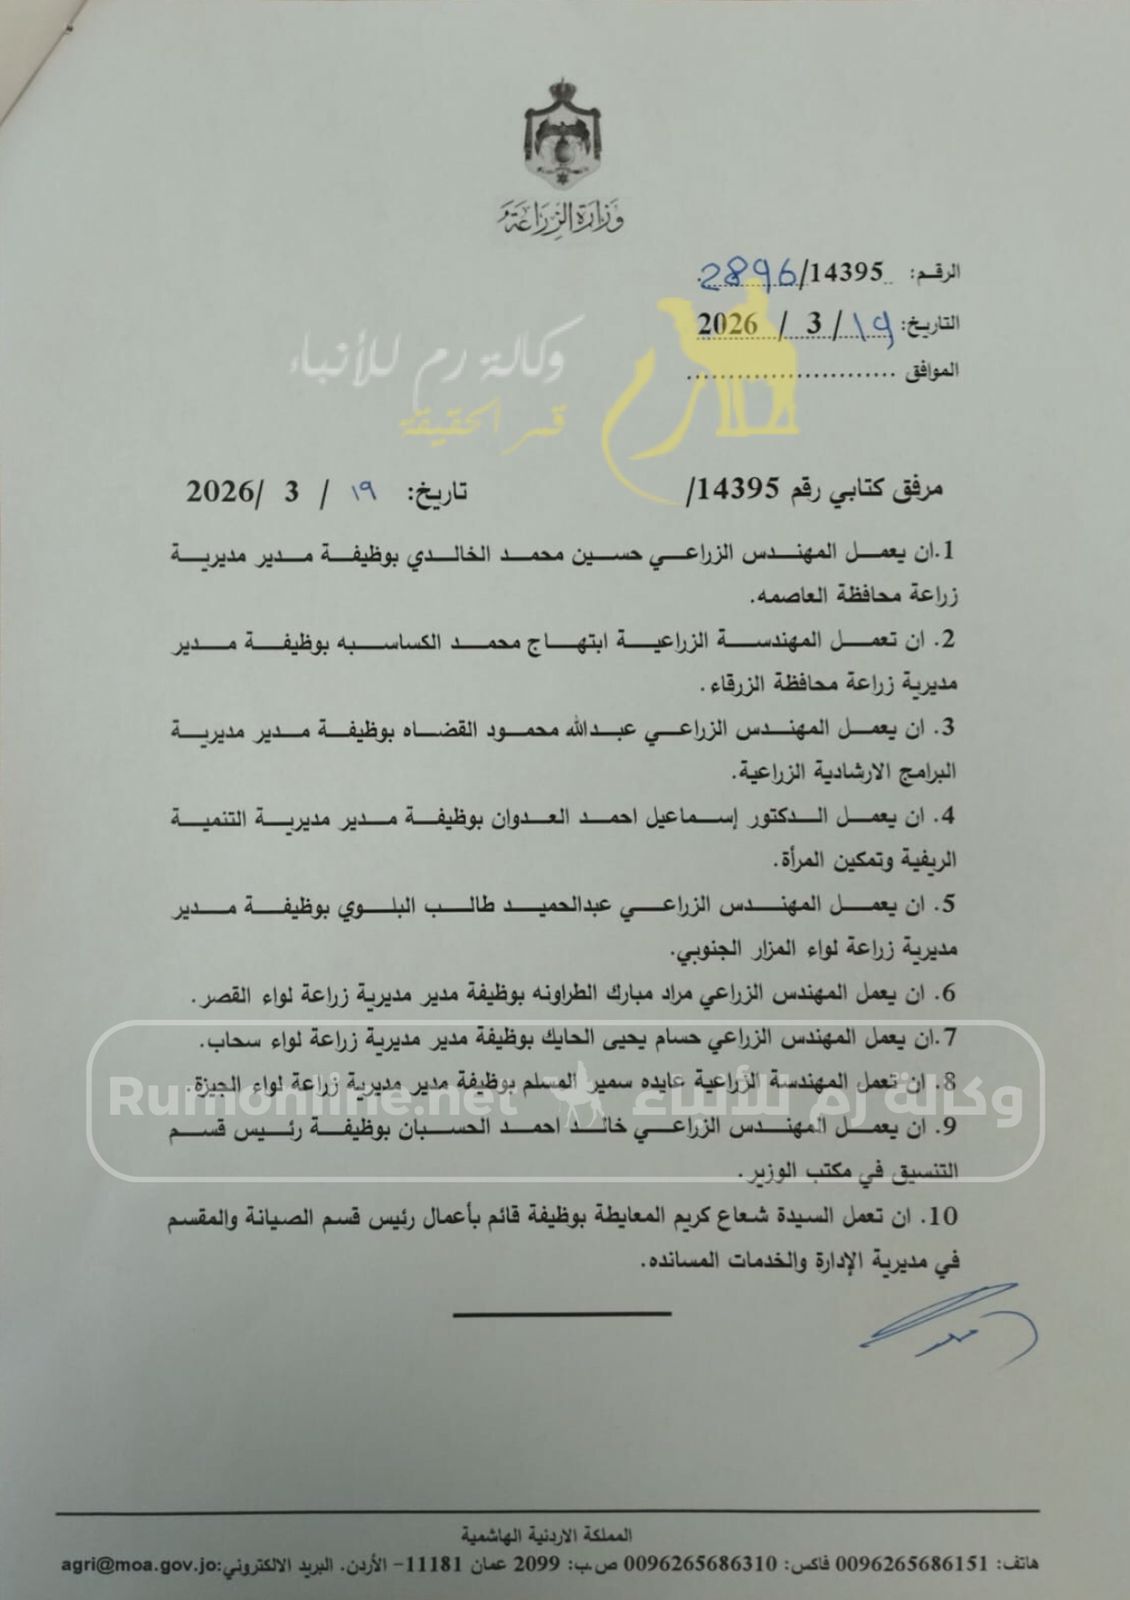 وزارة الزراعة
الرقم: 2896/14395
التاريخ: ١٩/ 3 / 2026
الموافق ........................
وكالة رم للأنباء
رم
قمر الحقيقة
مرفق كتابي رقم 14395/ تاريخ: ١٩ / 3 /2026
1.ان يعمل المهندس الزراعي حسين محمد الخالدي بوظيفة مدير مديرية
زراعة محافظة العاصمه.
2. ان تعمل المهندسة الزراعية ابتهاج محمد الكساسبه بوظيفة مدير
مديرية زراعة محافظة الزرقاء.
3. ان يعمل المهندس الزراعي عبدالله محمود القضاه بوظيفة مدير مديرية
البرامج الارشادية الزراعية.
4. ان يعمل الدكتور إسماعيل احمد العدوان بوظيفة مدير مديرية التنمية
الريفية وتمكين المرأة.
5. ان يعمل المهندس الزراعي عبدالحميد طالب البلوي بوظيفة مدير
مديرية زراعة لواء المزار الجنوبي.
6. ان يعمل المهندس الزراعي مراد مبارك الطراونه بوظيفة مدير مديرية زراعة لواء القصر.
7.ان يعمل المهندس الزراعي حسام يحيى الحايك بوظيفة مدير مديرية زراعة لواء سحاب.
8. ان تعمل المهندسة الزراعية عايده سمير المسلم بوظيفة مدير مديرية زراعة لواء الجيزة.
وكالة رم للأنباء Rumonline.net
9. ان يعمل المهندس الزراعي خالد احمد الحسبان بوظيفة رئيس قسم
التنسيق في مكتب الوزير.
10. ان تعمل السيدة شعاع كريم المعايطة بوظيفة قائم بأعمال رئيس قسم الصيانة والمقسم
في مديرية الإدارة والخدمات المسانده.
المملكة الاردنية الهاشمية
هاتف: 0096265686151 فاكس: 0096265686310 ص.ب: 2099 عمان 11181– الأردن. البريد الالكتروني:agri@moa.gov.jo